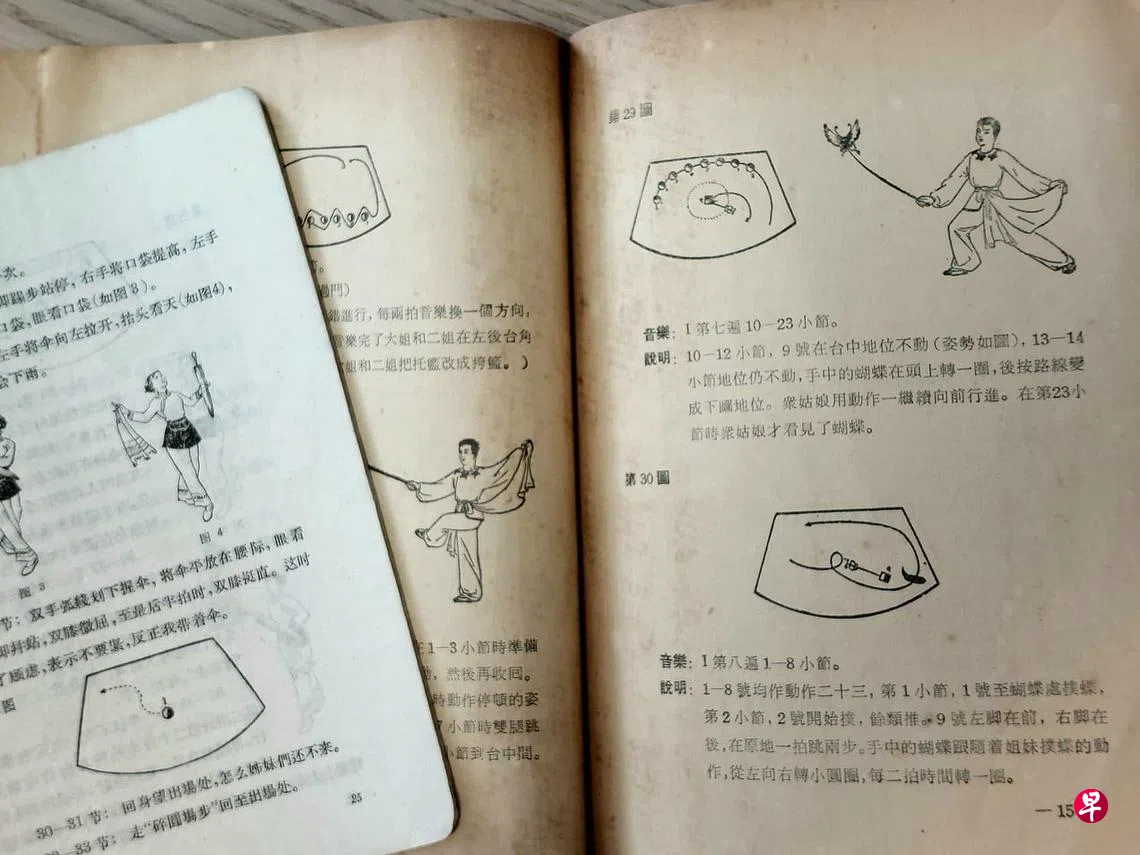 次。
脚踢步站停，右手將口袋提高，左手
口袋，眼看口袋（如图3）。
左手将伞向左拉开，抬头看天（如图4），
会下雨。
图 4
图 3
节：双手弧綫划下握伞，將伞平放在腰际，眼看
脚并站，双膝微屈，至最后半拍时，双膝挺直。这时
了顾虑，表示不要紧，反正我带着伞。
图
1
30—31节：回身望出場处，怎么姊妹們还不来。
—33节：走“碎圓場步”回至出場处。
25
過門）
錯進行，每兩拍音樂換一個方向，
音樂完了大姐和二姐在左後台角
姐和二姐把托籃改成挎籃。）
1—3小節時準備
，然後再收回。
時動作停頓的姿
小節時雙腿跳
小節到台中間。
第29圖
音樂：I第七遍10—23小節。
說明：10—12小節，9號在台中地位不動（姿勢如圖），13—14
小節地位仍不動，手中的蝴蝶在頭上轉一圈，後按路線變
成下圖地位。衆姑娘用動作一繼續向前行進。在第23小
節時衆姑娘才看見了蝴蝶。
第30圖
音樂：I第八遍1—8小節。
說明：1—8號均作動作二十三，第1小節，1號至蝴蝶處撲蝶，
第2小節，2號開始撲，餘類推。9號左脚在前，右脚在
後，在原地一拍跳兩步。手中的蝴蝶跟隨着姐妹撲蝶的動
作，從左向右轉小圓圈，每二拍時間轉一圈。
— 15
早